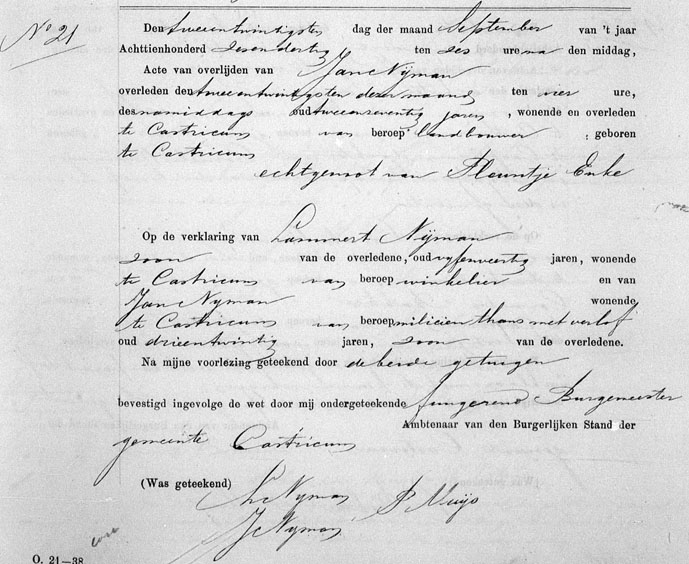 No 21
Den tweeentwintigsten dag der maand September van 't jaar
Achttienhonderd zesendertig ten zes ure na den middag,
Acte van overlijden van Jan Nijman
overleden den tweeentwintigsten dezer maand ten vier ure,
des namiddags oud tweeenzeventig jaren, wonende en overleden
te Castricum van beroep landbouwer, geboren
te Castricum
echtgenoot van Pleuntje Enke
Op de verklaring van Lammert Nijman
zoon van de overledene, oud vyfenveertig jaren, wonende
te Castricum van beroep winkelier en van
Jan Nyman wonende
te Castricum van beroep milicien thans met verlof
oud drieentwintig jaren, zoon van de overledene.
Na mijne voorlezing geteekend door de beide getuigen
bevestigd ingevolge de wet door mij ondergeteekende fungerend Burgemeester
Ambtenaar van den Burgerlijken Stand der
gemeente Castricum
(Was geteekend) L Nyman P Muijs
J Nyman
O. 21—38.